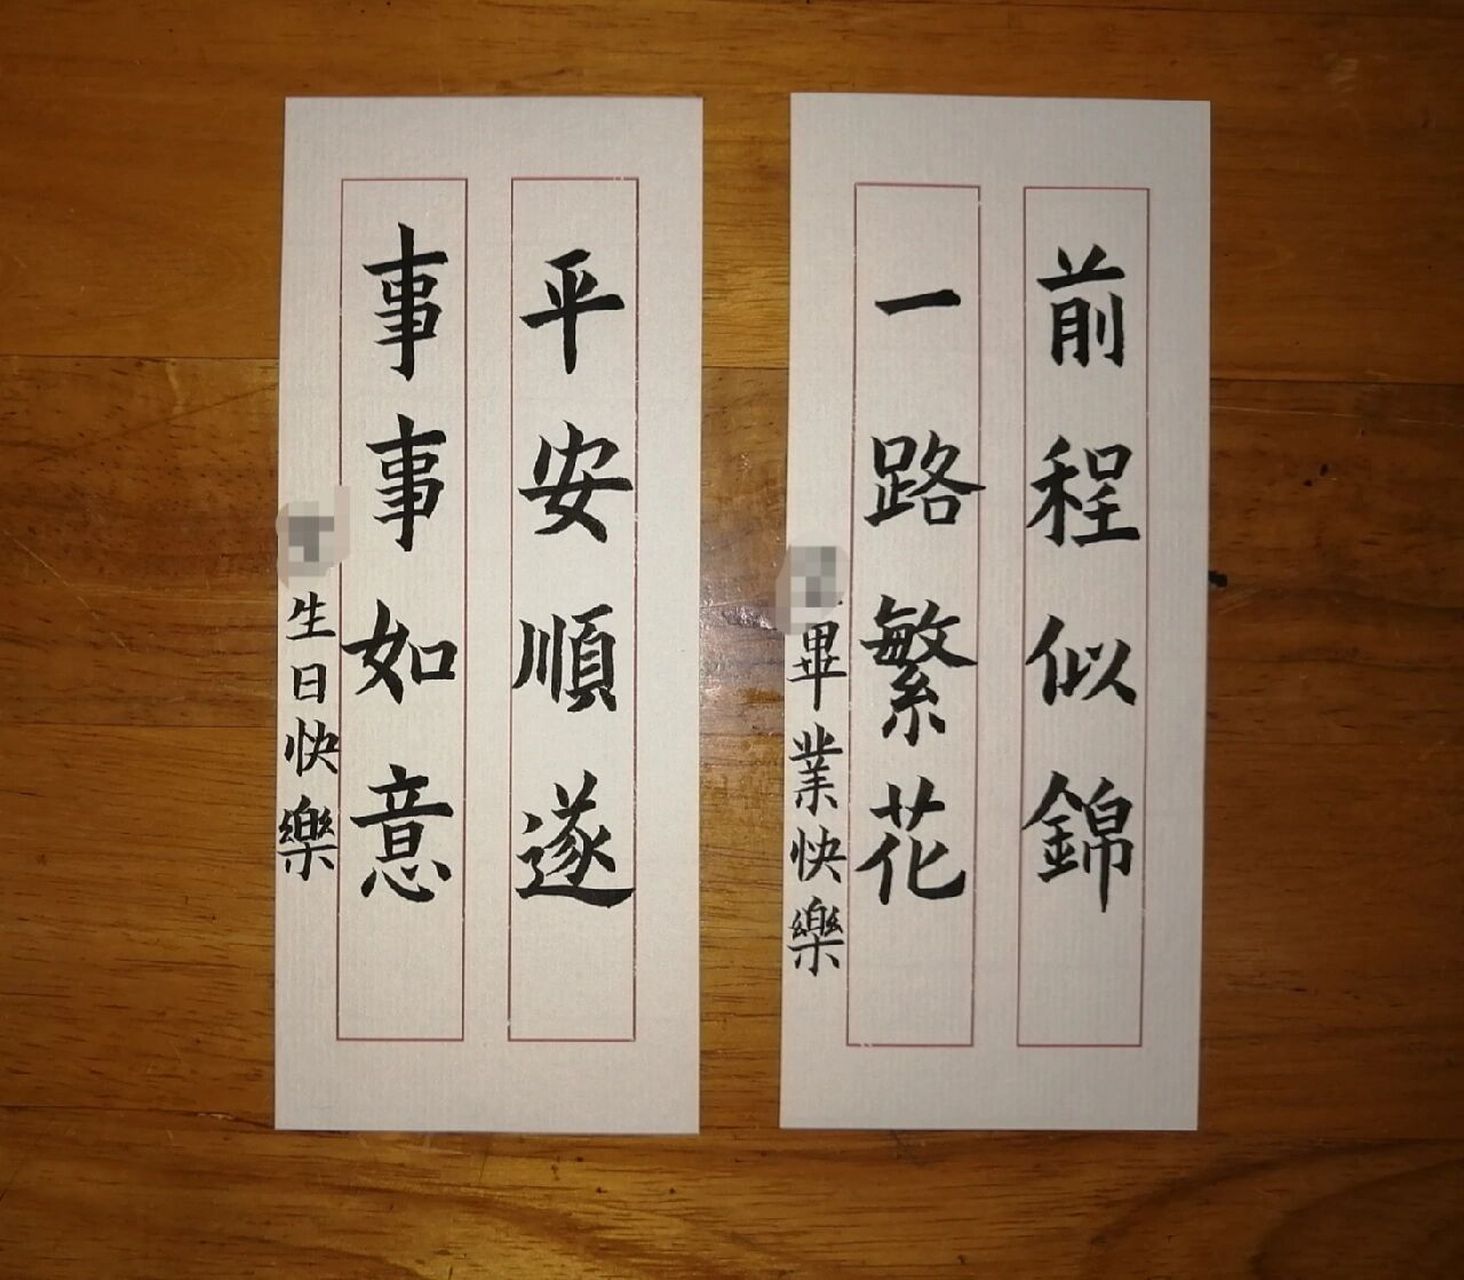 前程似錦
一路繁花
畢業快樂
平安順遂
事事如意
生日快樂